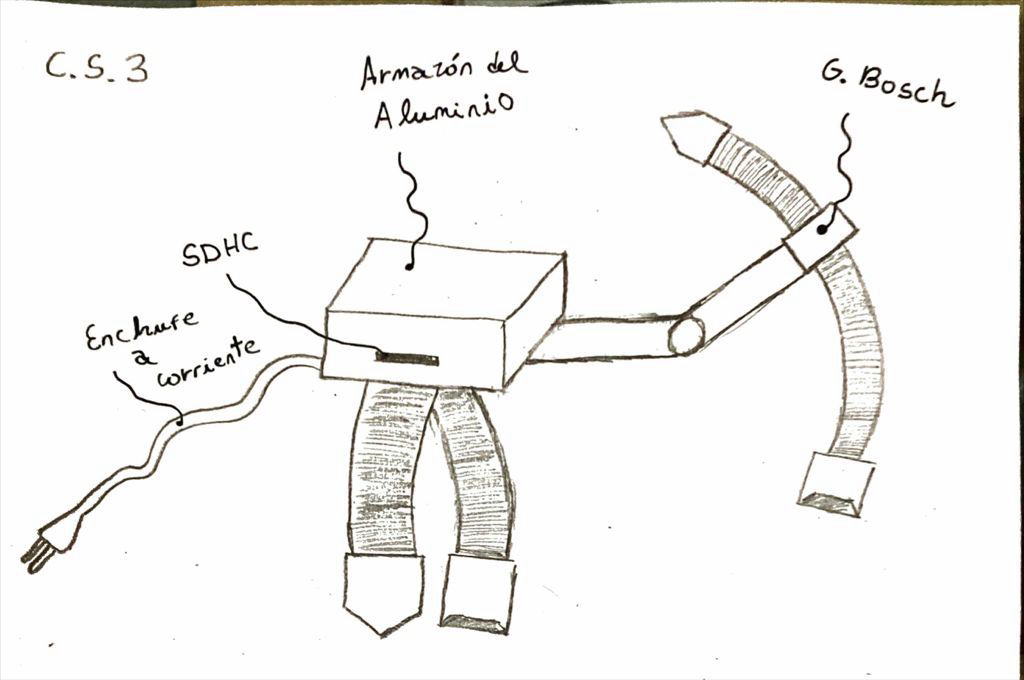 C.S.3
Armazón del
Aluminio
G. Bosch
SDHC
Enchufe
a
corriente